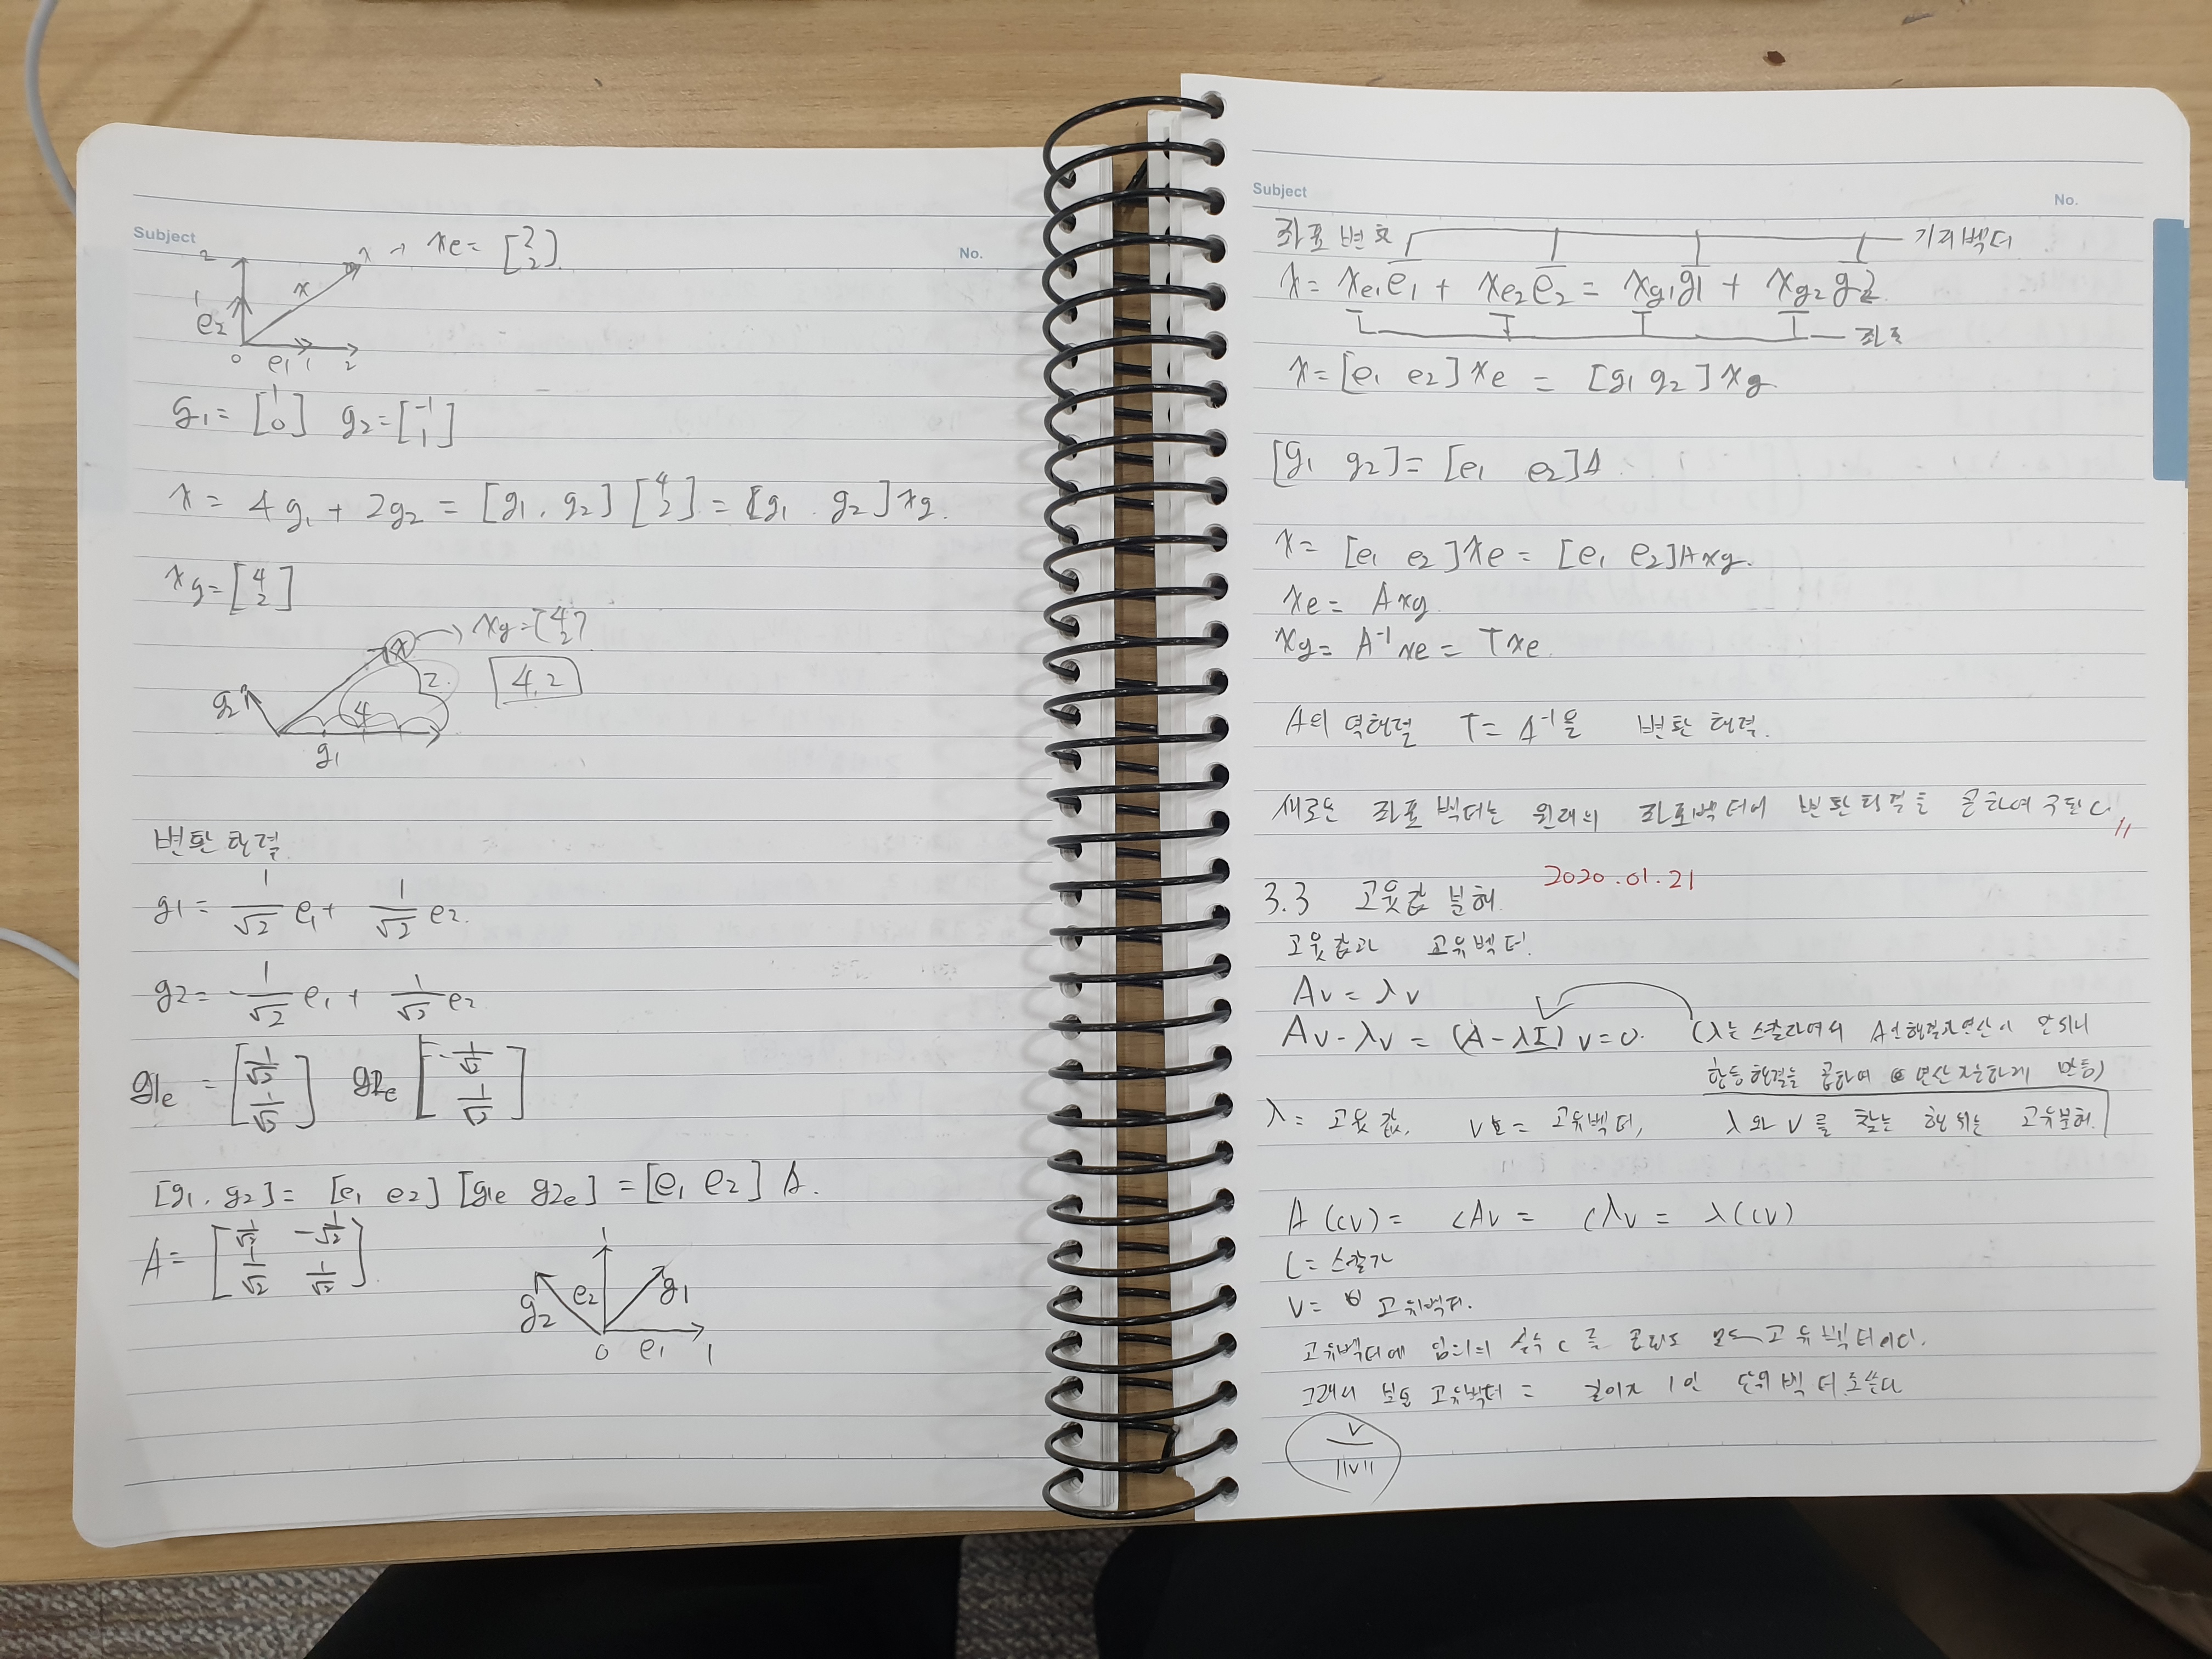 Subject
No.
2
x → xe = [2 2]
x
1
e2
0 e1 1 2
g1 = [1 0] g2 = [-1 1]
x = 4g1 + 2g2 = [g1, g2] [4 2] = [g1 g2] xg.
xg = [4 2]
x → xg = [4 2]
2
4,2
g2
4
g1
변환행렬
g1 = 1/√2 e1 + 1/√2 e2.
g2 = -1/√2 e1 + 1/√2 e2
g1e = [1/√2 1/√2] g2e [-1/√2 1/√2]
[g1, g2] = [e1 e2] [g1e g2e] = [e1 e2] A.
A = [1/√2 -1/√2 1/√2 1/√2]
1
g2 e2 g1
0 e1 1
Subject
No.
좌표변환
기저벡터
x = xe1e1 + xe2e2 = xg1g1 + xg2g2
좌표
x = [e1 e2] xe = [g1 g2] xg.
[g1 g2] = [e1 e2] A
x = [e1 e2] xe = [e1 e2] A xg.
xe = A xg
xg = A⁻¹ xe = T xe.
A의 역행렬 T = A⁻¹을 변환행렬.
새로운 좌표 벡터는 원래의 좌표벡터에 변환행렬을 곱하여 구한다
2020.01.21
3.3 고윳값 분해.
고윳값과 고유벡터.
Av = λv
Av - λv = (A - λI) v = 0. (λ는 스칼라여서 A인 행렬과 연산이 안되니
항등행렬을 곱하여 연산 가능하게 만듬)
λ = 고윳값, v = 고유벡터, λ와 v를 찾는 행위는 고유분해.
A(cv) = cAv = cλv = λ(cv)
c = 스칼라
v = 고유벡터.
고유벡터에 임의의 실수 c를 곱해도 모두 고유벡터이다.
그래서 보통 고유벡터 = 길이가 1인 단위벡터로 쓴다
v
||v||